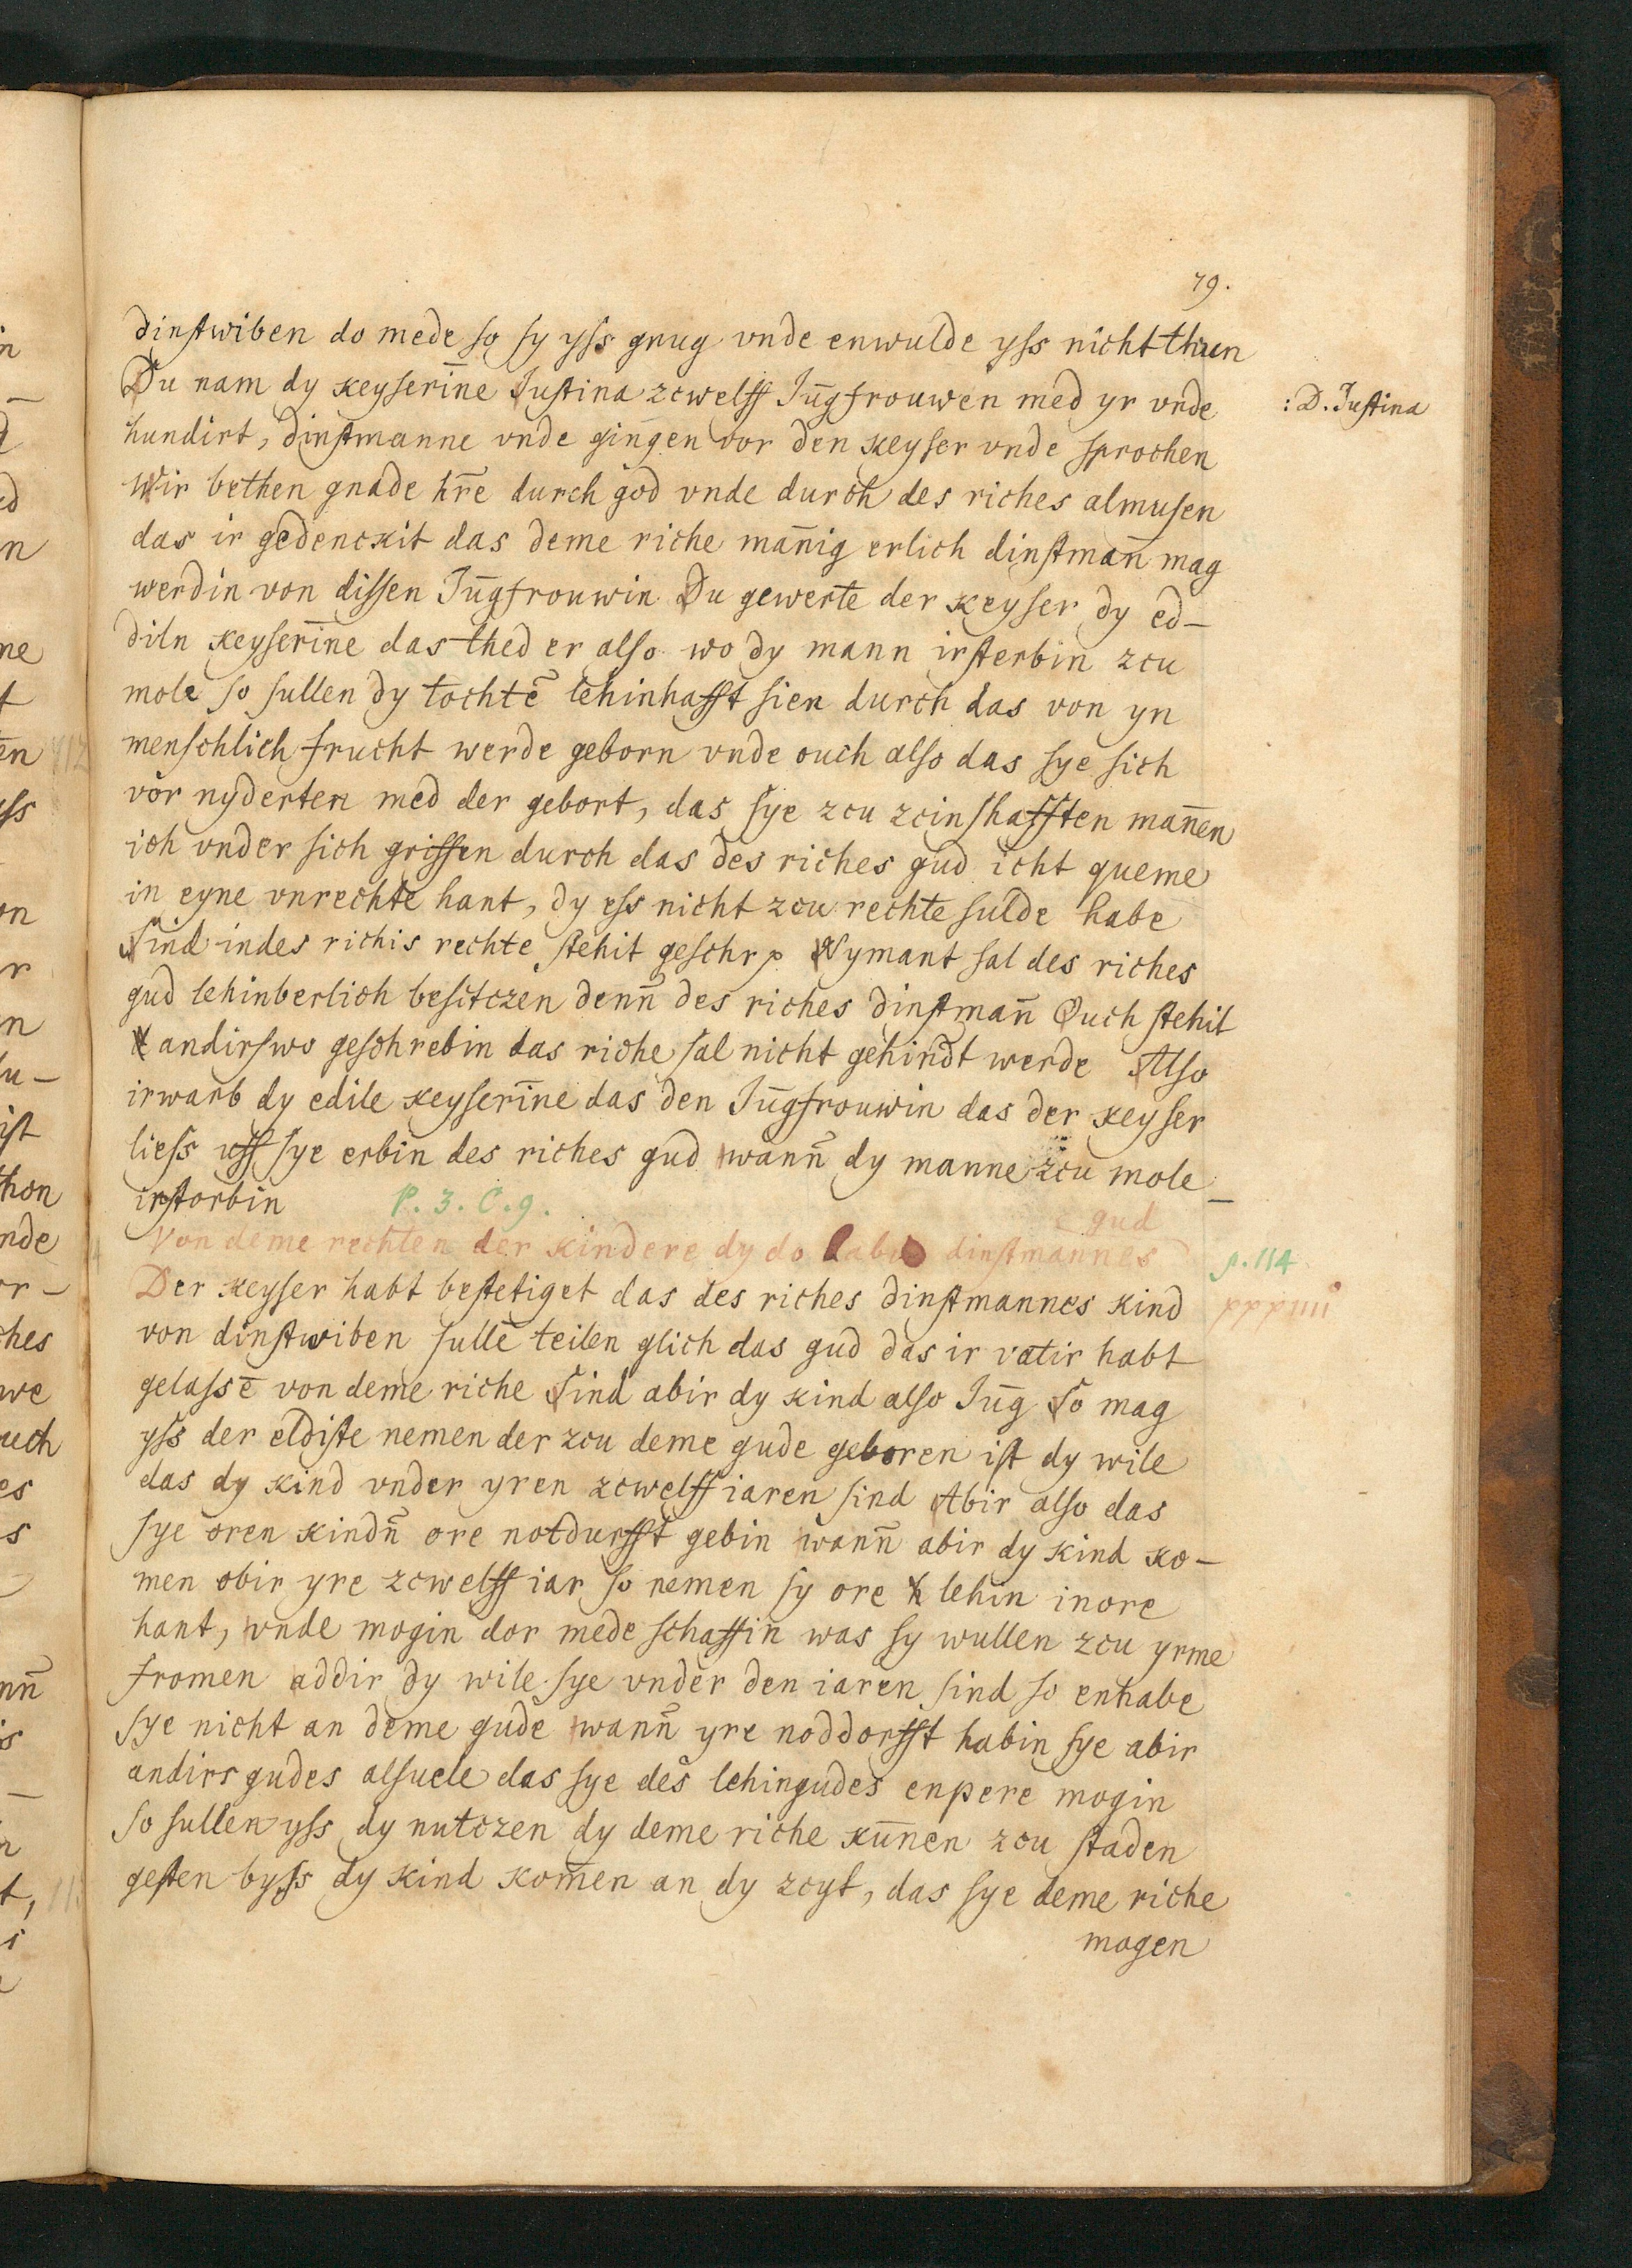 79.
dinstwiben do mede so sy yss gnug vnde enwulde yss nicht thun
Du nam dy keyserīne Justina zcwelff Jūgfrouwen med yr vnde
:D. Justina
hundirt, dinstmanne vnde gingen vor den keyser vnde sprochen
Wir bethen gnade hr̄e durch god vnde durch des riches almusen
das ir gedenckit das deme riche man̄ig erlich dinstman̄ mag
werdin von dissen Jūgfrouwin Du gewerte der keyser dy ed-
diln keyserīne das thed er also wo dy mann irsterbin zcu
mole so sullen dy tochtē lehinhafft sien durch das von yn
menschlich frucht werde geborn vnde ouch also das sye sich
vor nyderten med der gebort, das sye zcu zcinshafften man̄en
ich vnder sich griffen durch das des riches gud icht queme
in eyne vnrechte hant, dy ess nicht zcu rechte sulde habe
Sind indes richis rechte stehit geschrp Nymant sal des riches
gud lehinberlich besitczen denn̄ des riches dinstman̄ Ouch stehit
andirswo geschrebin das riche sal nicht gehindt werde Also
irwarb dy edile keyserīne das den Jūgfrouwin das der keyser
liess uff sye erbin des riches gud wann̄ dy manne zcu mole
irstorbin P. 3. C. 9.
gud
Von deme rechten der kindere dy do dinstmannes
p. 114
Der keyser habt bestetiget das des riches dinstmannes kind
von dinstwiben sullē teilen glich das gud das ir vatir habt
gelassē von deme riche Sind abir dy kind also Jūg So mag
yss der eldiste nemen der zcu deme gude geboren ist dy wile
das dy kind vnder yren zcwelff iaren sind Abir also das
sye oren kindn̄ ore notdurfft gebin wann̄ abir dy kind ko-
men obir yre zcwelff iar so nemen sy ore lehin inore
hant, vnde mogin dor mede schaffin was sy wullen zcu yrme
fromen addir dy wile sye vnder den iaren sind so enhabe
sye nicht an deme gude wann̄ yre noddorfft habin sye abir
andirs gudes alsuele das sye des lehingudes enpere mogin
so sullen yss dy nutczen dy deme riche kūnen zcu staden
gesten byss dy kind kom̄en an dy zcyt, das sye deme riche
mogen